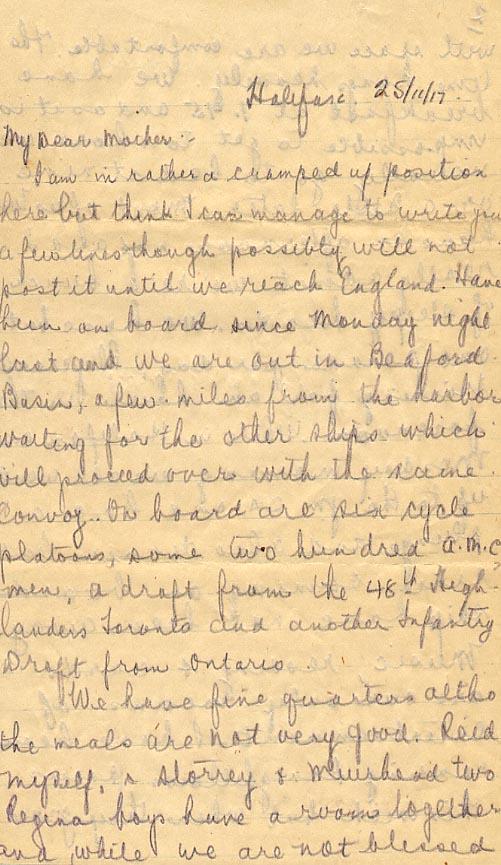 Halifax 25/11/17.
My Dear Mother :-
I am in rather a cramped up position
here but think I can manage to write you
a few lines though possibly will not
post it until we reach England. Have
been on board since Monday night
last and we are out in Beaford
Basin, a few miles from the harbor
waiting for the other ships which
will proceed over with the same
Convoy. On board are six cycle
platoons, some two hundred A.M.C,
men, a draft from the 48th High-
landers Toronto and another Infantry
Draft from Ontario.
We have fine quarters altho
the meals are not very good. Reid
myself, & Storrey & Muirhead two
Regina boys have a room together
and, while we are not blessed